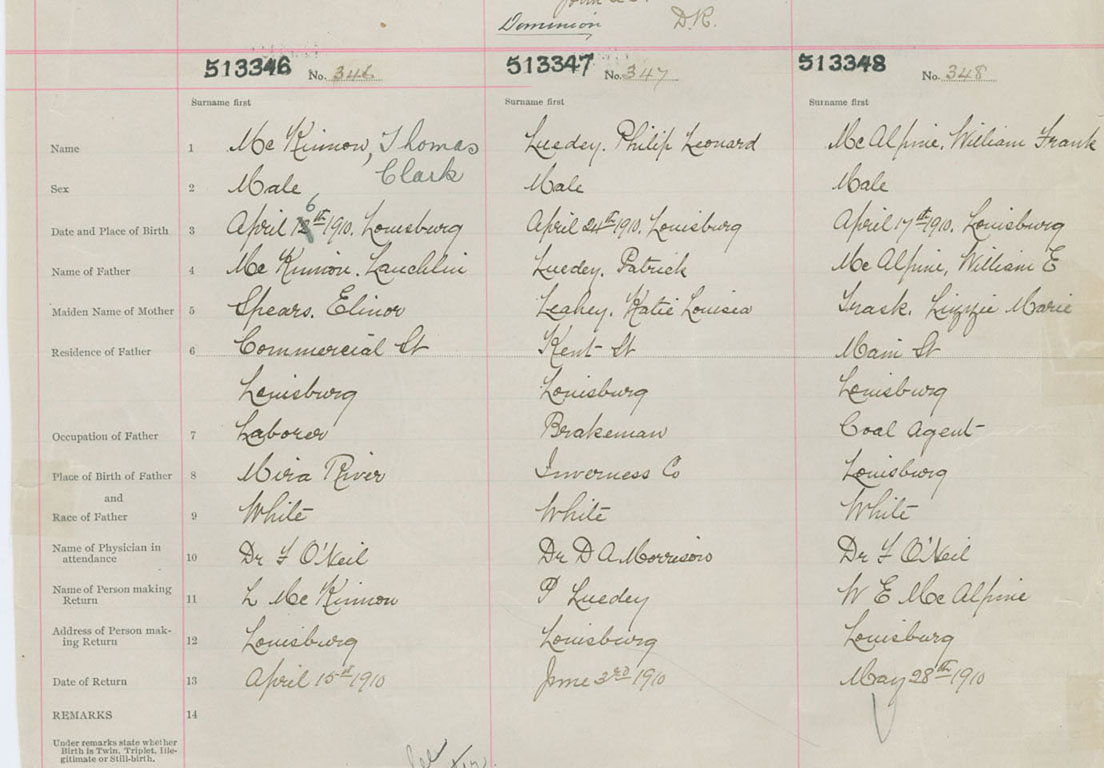 Dominion D.R.
513346 No. 346 513347 No. 347 513348 No. 348
Surname first Surname first Surname first
Name 1 Mc Kinnon, Thomas Clark Luedey. Philip Leonard Mc Alpine, William Frank
Sex 2 Male Male Male
Date and Place of Birth 3 April 6th 1910. Louisburg April 24th 1910. Louisburg April 17th 1910. Louisburg
Name of Father 4 Mc Kinnon. Lauchlin Luedey. Patrick Mc Alpine, William E
Maiden Name of Mother 5 Spears. Elinor Leahey. Katie Louisea Trask. Lizzie Marie
Residence of Father 6 Commercial St Kent St Main St
Louisburg Louisburg Louisburg
Occupation of Father 7 Laborer Brakeman Coal Agent
Place of Birth of Father 8 Mira River Inverness Co Louisburg
and
Race of Father 9 White White White
Name of Physician in
attendance 10 Dr F O'Neil Dr D A Morrison Dr F O'Neil
Name of Person making
Return 11 L Mc Kinnon P Luedey W E Mc Alpine
Address of Person mak-
ing Return 12 Louisburg Louisburg Louisburg
Date of Return 13 April 15th 1910 June 3rd 1910 May 28th 1910
REMARKS 14
Under remarks state whether
Birth is Twin, Triplet, Ille-
gitimate or Still-birth.